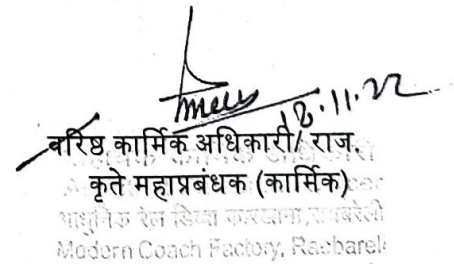 18.11.22
वरिष्ठ कार्मिक अधिकारी/ राज.
कृते महाप्रबंधक (कार्मिक)
आधुनिक रेल डिब्बा कारखाना, रायबरेली
Modern Coach Factory, Raebareli